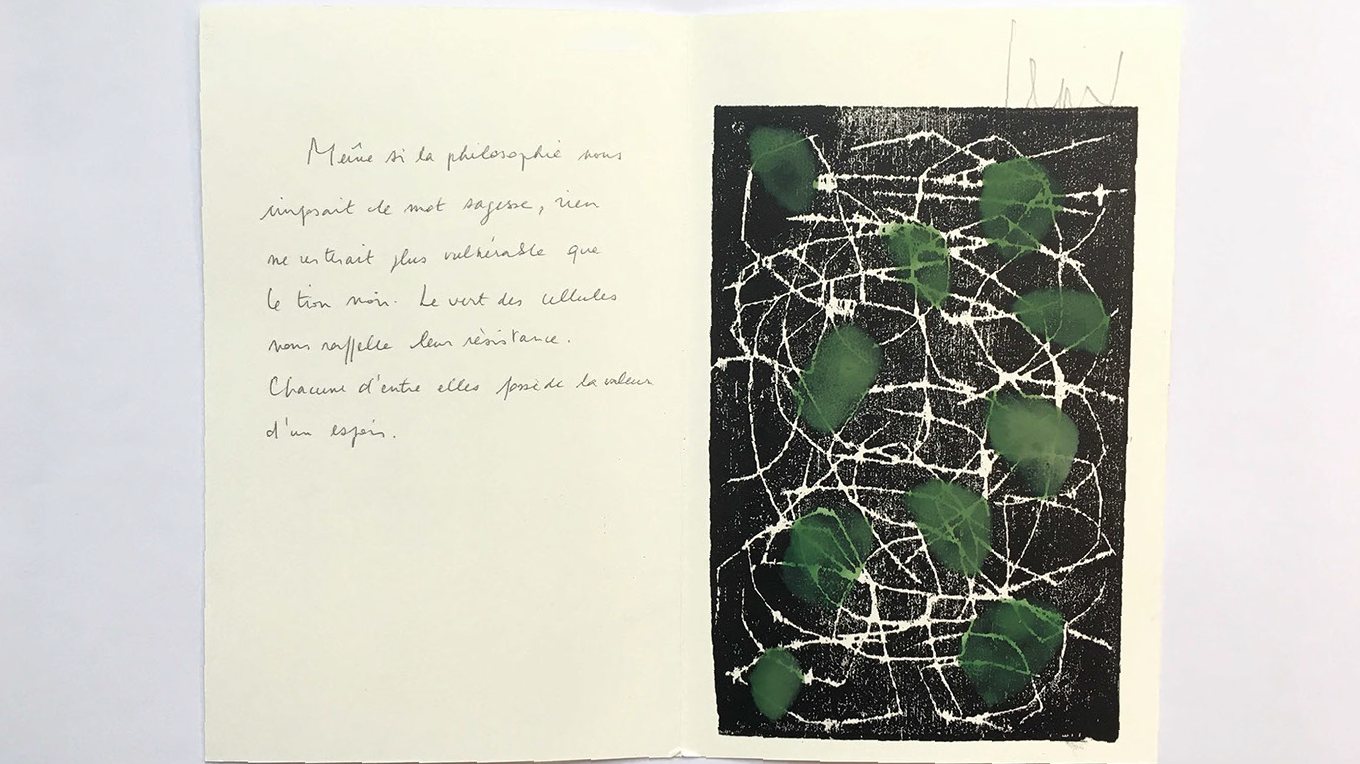 Même si la philosophie nous
imposait le mot sagesse, rien
ne resterait plus vulnérable que
le tronc noir. Le vert des cellules
nous rappelle leur résistance.
Chacune d'entre elles possède la valeur
d'un espoir.